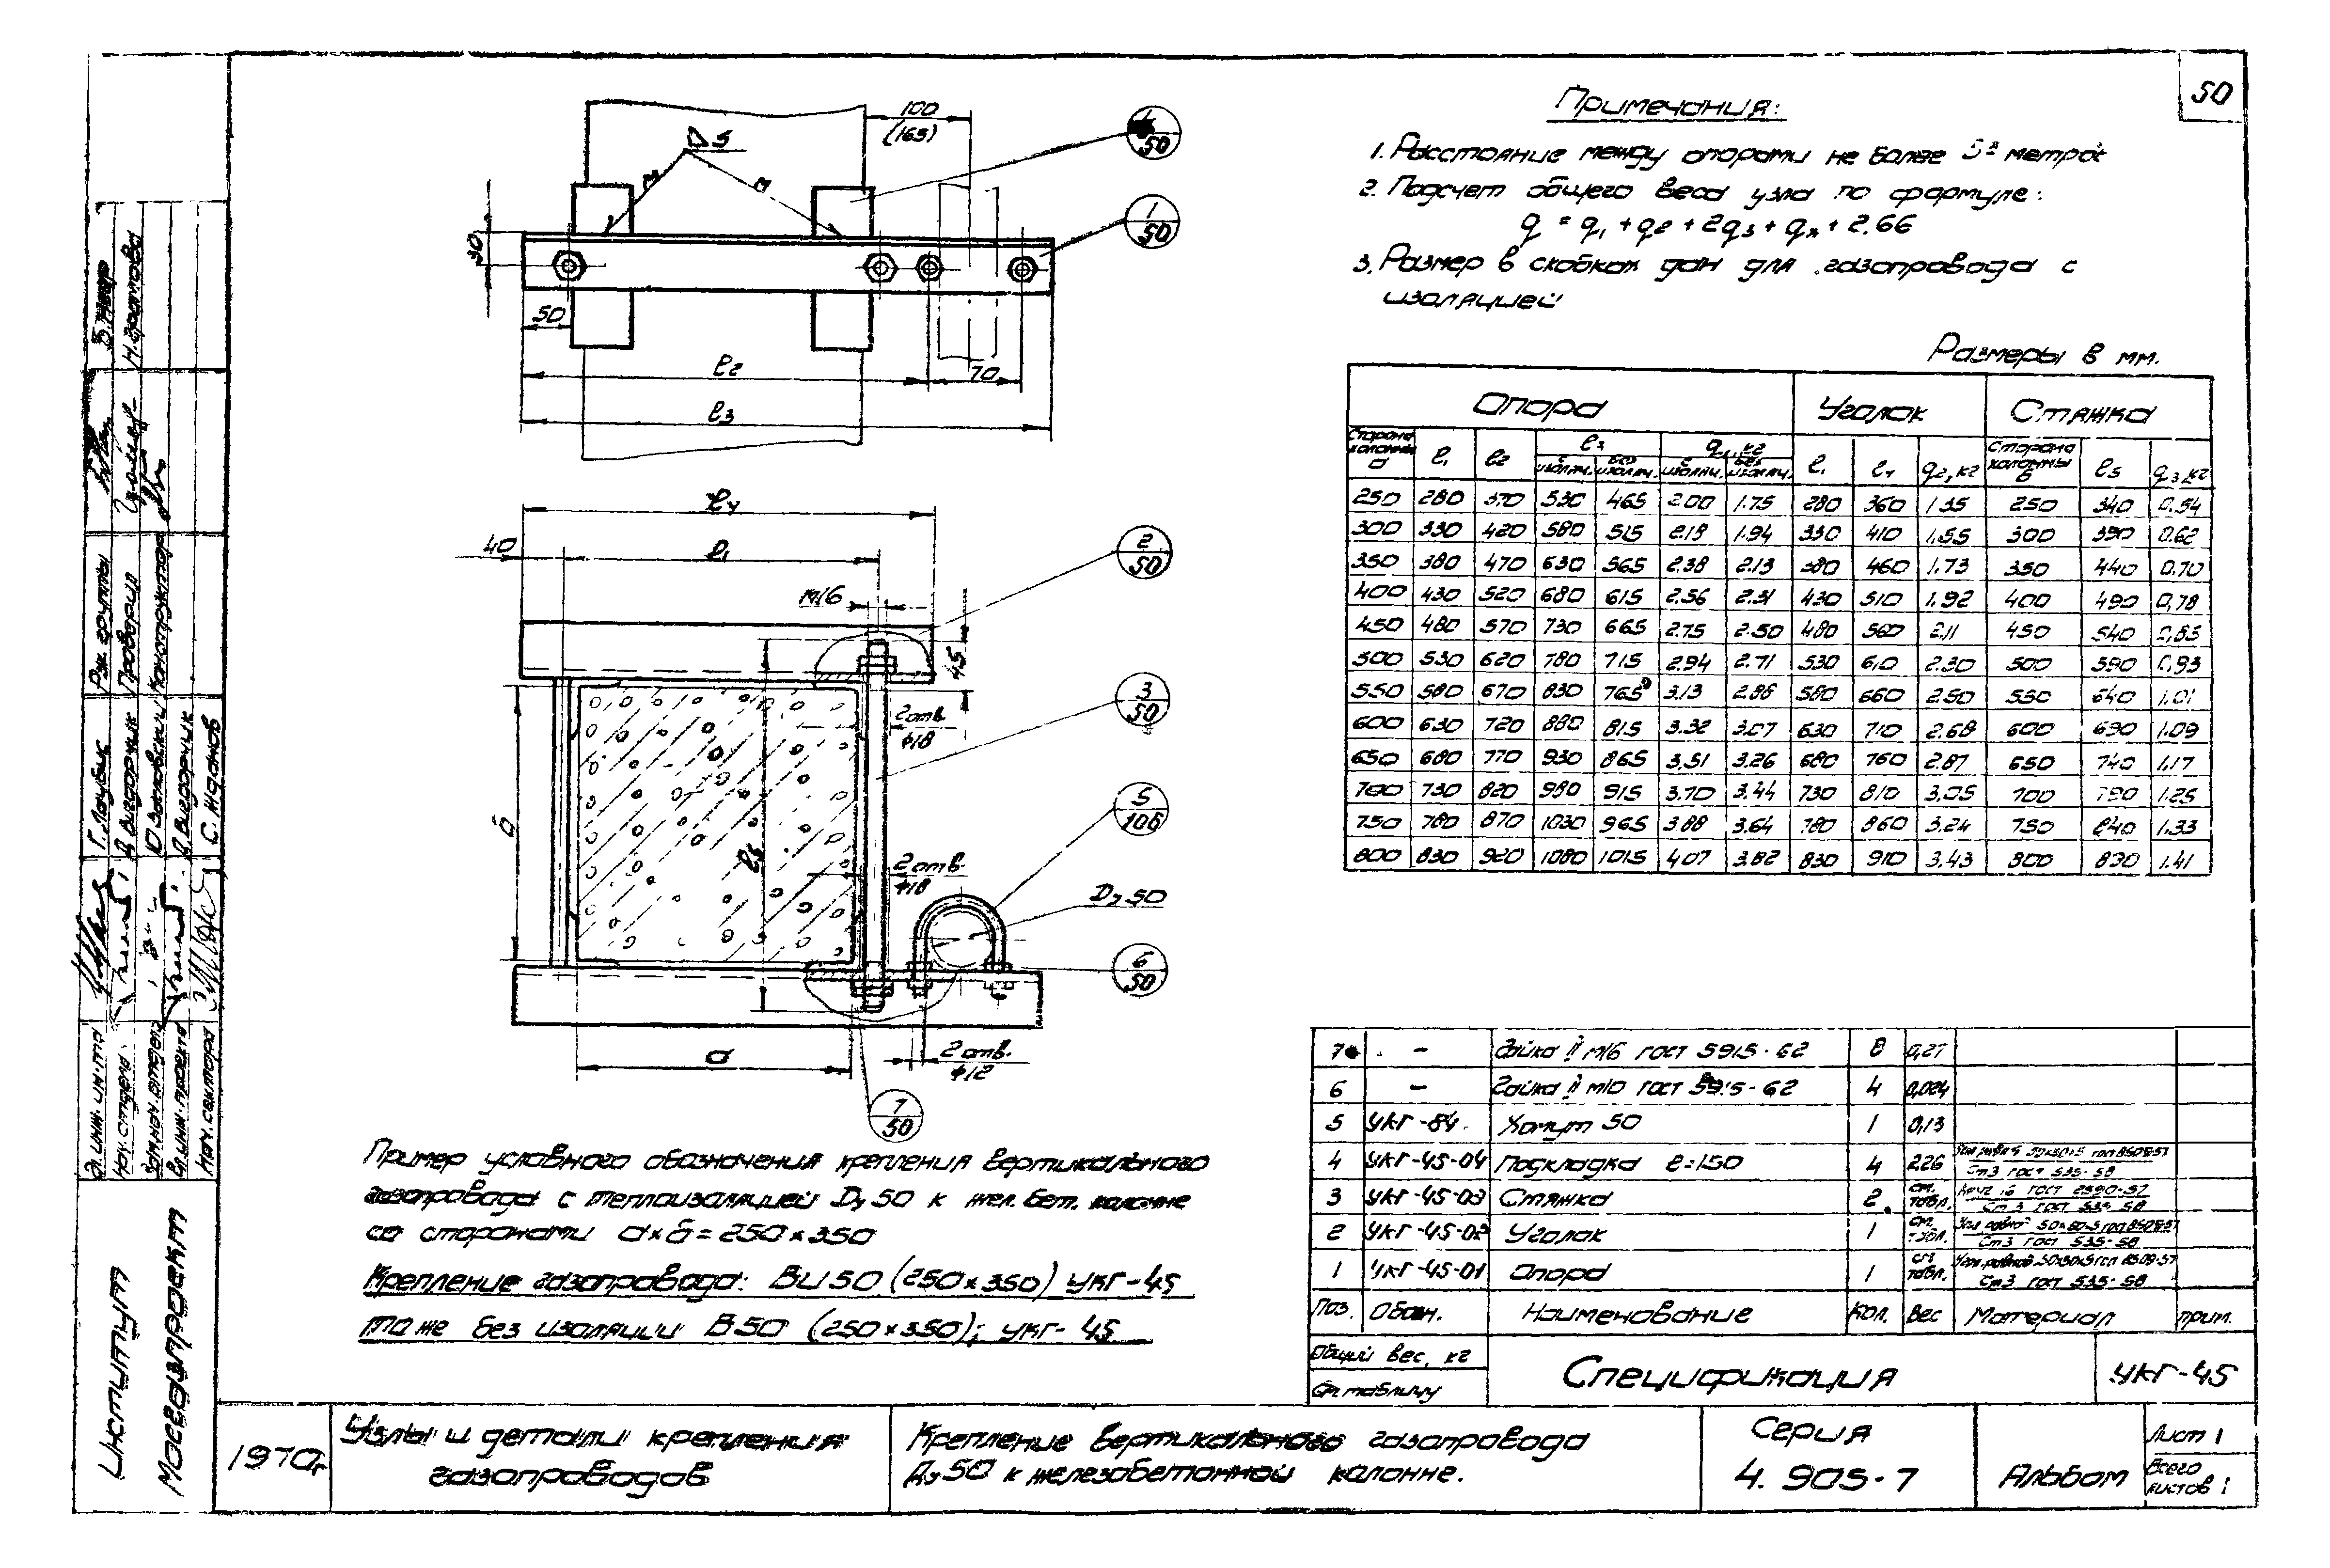 50
Примечания:
1. Расстояние между опорами не более 5ⁿ метров
2. Подсчет общего веса узла по формуле:
q = q₁ + q₂ + 2q₃ + qₓ + 2.66
3. Размер в скобках дан для газопровода с
изоляцией
100
(165)
50
1
50
30
50
ℓ₂
70
ℓ₃
ℓ₄
40
ℓ₁
М16
2
50
45
3
50
2 отв.
ф18
5
106
б
ℓ₅
2 отв.
ф18
Dу 50
6
50
а
2 отв.
ф12
7
50
Размеры в мм.
Опора | Уголок | Стяжка
Сторона колонны а | ℓ₁ | ℓ₂ | ℓ₃ | q₁, кг | ℓ₁ | ℓ₄ | q₂, кг | Сторона колонны б | ℓ₅ | q₃, кг
с изоляц. | без изоляц. | с изоляц. | без изоляц.
250 | 280 | 370 | 530 | 465 | 2.00 | 1.75 | 280 | 360 | 1.35 | 250 | 340 | 0.54
300 | 330 | 420 | 580 | 515 | 2.19 | 1.94 | 330 | 410 | 1.55 | 300 | 390 | 0.62
350 | 380 | 470 | 630 | 565 | 2.38 | 2.13 | 380 | 460 | 1.73 | 350 | 440 | 0.70
400 | 430 | 520 | 680 | 615 | 2.56 | 2.31 | 430 | 510 | 1.92 | 400 | 490 | 0,78
450 | 480 | 570 | 730 | 665 | 2.75 | 2.50 | 480 | 560 | 2.11 | 450 | 540 | 0,85
500 | 530 | 620 | 780 | 715 | 2.94 | 2.71 | 530 | 610 | 2.30 | 500 | 590 | 0,93
550 | 580 | 670 | 830 | 765 | 3.13 | 2.88 | 580 | 660 | 2.50 | 550 | 640 | 1.01
600 | 630 | 720 | 880 | 815 | 3.32 | 3.07 | 630 | 710 | 2.68 | 600 | 690 | 1.09
650 | 680 | 770 | 930 | 865 | 3.51 | 3.26 | 680 | 760 | 2.87 | 650 | 740 | 1.17
700 | 730 | 820 | 980 | 915 | 3.70 | 3.44 | 730 | 810 | 3.05 | 700 | 790 | 1.25
750 | 780 | 870 | 1030 | 965 | 3.88 | 3.64 | 780 | 860 | 3.24 | 750 | 840 | 1.33
800 | 830 | 920 | 1080 | 1015 | 4.07 | 3.82 | 830 | 910 | 3.43 | 800 | 890 | 1.41
Пример условного обозначения крепления вертикального
газопровода с теплоизоляцией Dу 50 к жел. бет. колонне
со сторонами а×б = 250×350
Крепление газопровода: ВИ 50 (250×350) УКГ-45
То же без изоляции В50 (250×350); УКГ-45
7 | – | Гайка II М16 ГОСТ 5915-62 | 8 | 0,27
6 | – | Гайка II М10 ГОСТ 5915-62 | 4 | 0,024
5 | УКГ-84 | Хомут 50 | 1 | 0,13
4 | УКГ-45-04 | Подкладка ℓ=150 | 4 | 2.26 | Угол. равнoб. 50×50×5 ГОСТ 8509-57 Ст3 ГОСТ 535-58
3 | УКГ-45-03 | Стяжка | 2 | см. табл. | Круг 16 ГОСТ 2590-57 Ст3 ГОСТ 535-58
2 | УКГ-45-02 | Уголок | 1 | см. табл. | Угол. равноб. 50×50×5 ГОСТ 8509-57 Ст3 ГОСТ 535-58
1 | УКГ-45-01 | Опора | 1 | см. табл. | Угол. равноб. 50×50×5 ГОСТ 8509-57 Ст3 ГОСТ 535-58
Поз. | Обозн. | Наименование | Кол. | Вес | Материал | Прим.
Общий вес, кг
См. таблицу
Спецификация
УКГ-45
1970г.
Узлы и детали крепления
газопроводов
Крепление вертикального газопровода
Dу 50 к железобетонной колонне.
Серия
4.905-7
Альбом
Лист 1
Всего
листов 1
Институт
Мосгазпроект
Гл. инж. ин-та
Нач. отдела
Зам. нач. отдела
Гл. инж. проекта
Нач. сектора
А. Вигдорчик
А. Вигдорчик
С. Жданов
Рук. группы
Проверил
Конструктор